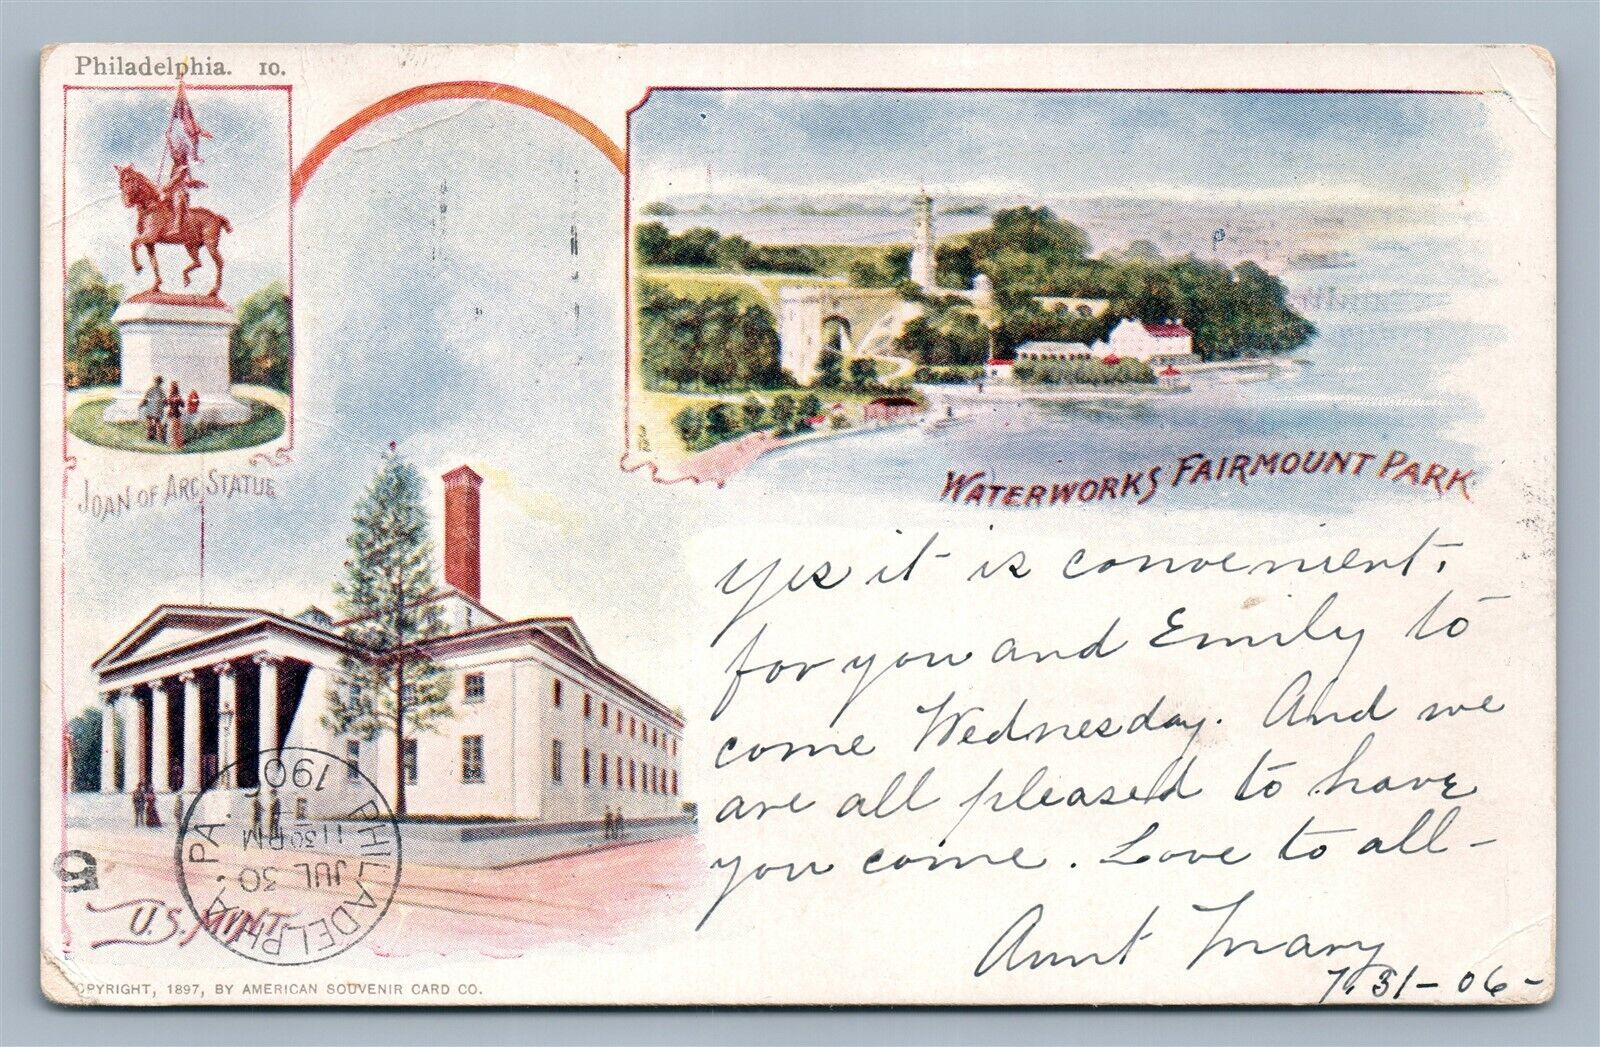 Philadelphia. 10.
JOAN OF ARC STATUE
WATERWORKS FAIRMOUNT PARK
yes it is convenient.
for you and Emily to
come Wednesday. And we
are all pleased to have
you come. Love to all-
Aunt Mary
7.31-06-
PHILADELPHIA, PA.
JUL 30
1130 PM
1906
5
U.S. MINT
COPYRIGHT, 1897, BY AMERICAN SOUVENIR CARD CO.